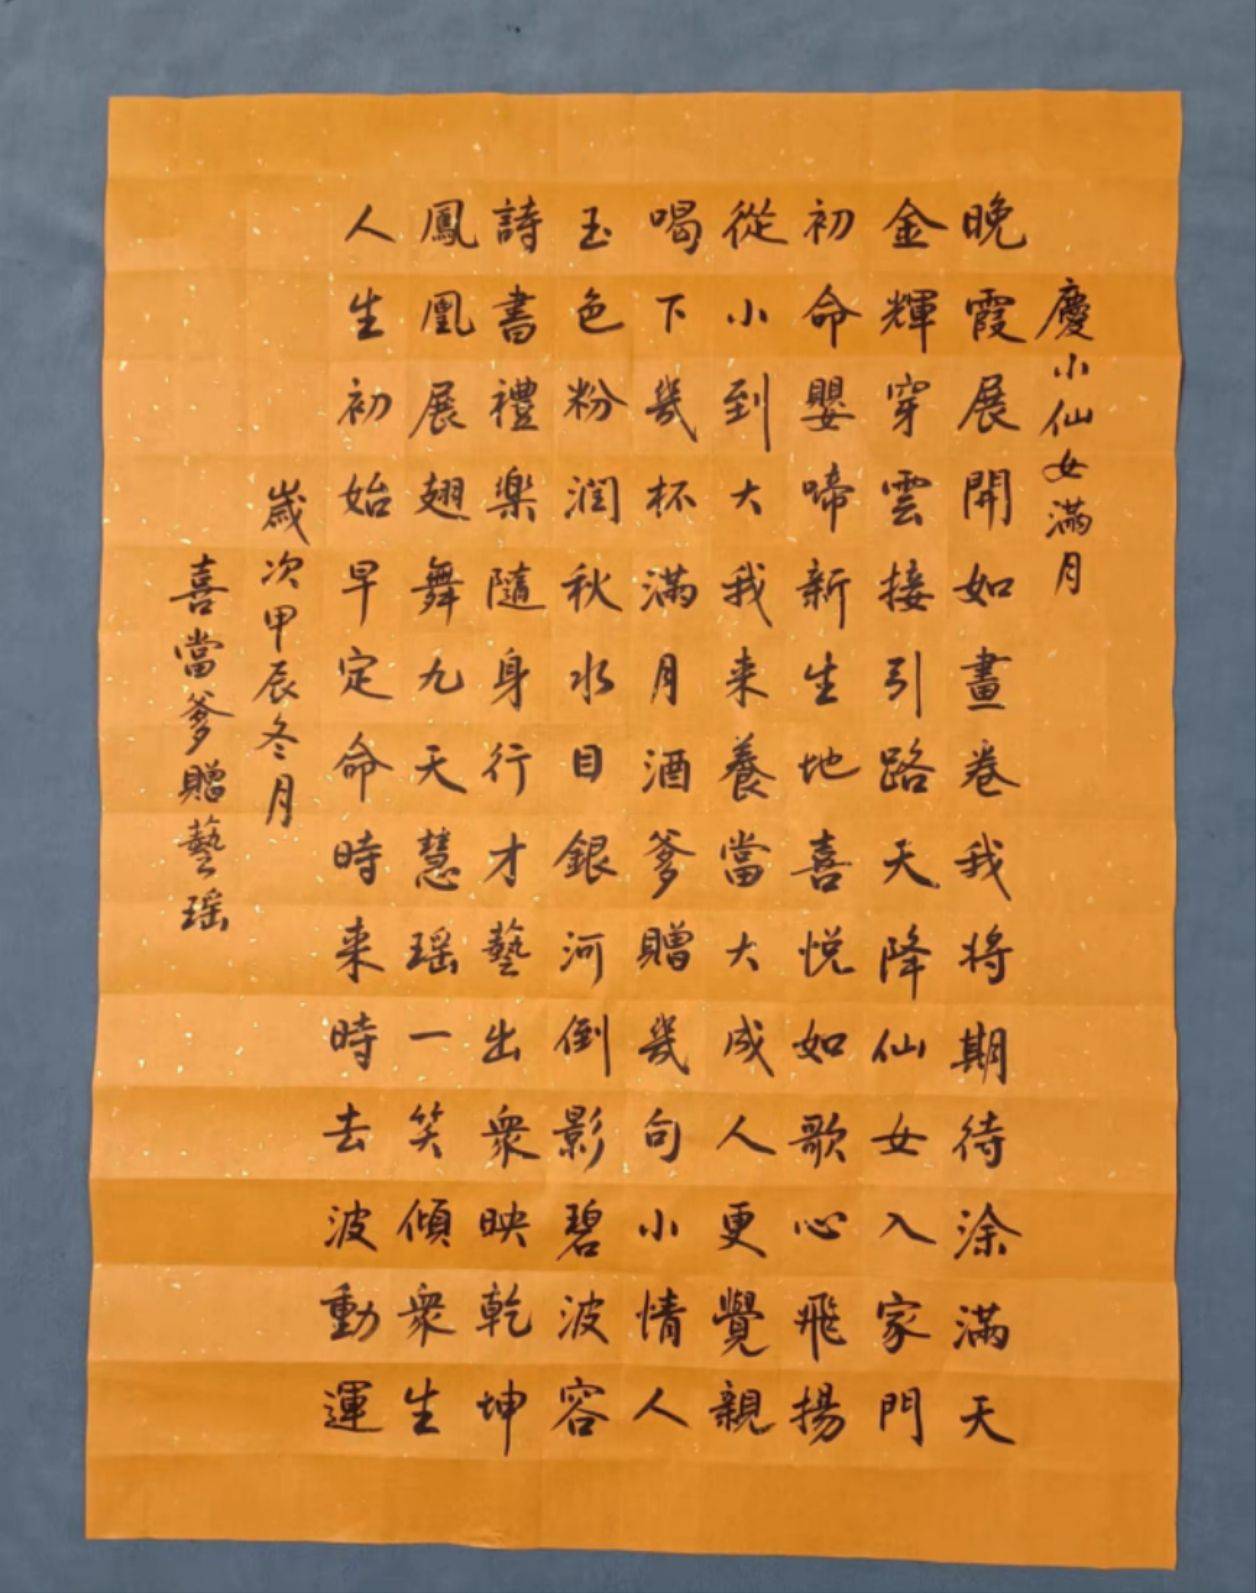 慶小仙女滿月
晚霞展開如畫卷我將期待涂滿天
金輝穿雲接引路天降仙女入家門
初命嬰啼新生地喜悅如歌心飛揚
從小到大我来養當大成人更覺親
喝下幾杯滿月酒爹贈幾句小情人
玉色粉潤秋水目銀河倒影碧波容
詩書禮樂隨身行才藝出衆映乾坤
鳳凰展翅舞九天慧瑶一笑傾衆生
人生初始早定命時来時去波動運
歲次甲辰冬月
喜當爹贈藝瑶